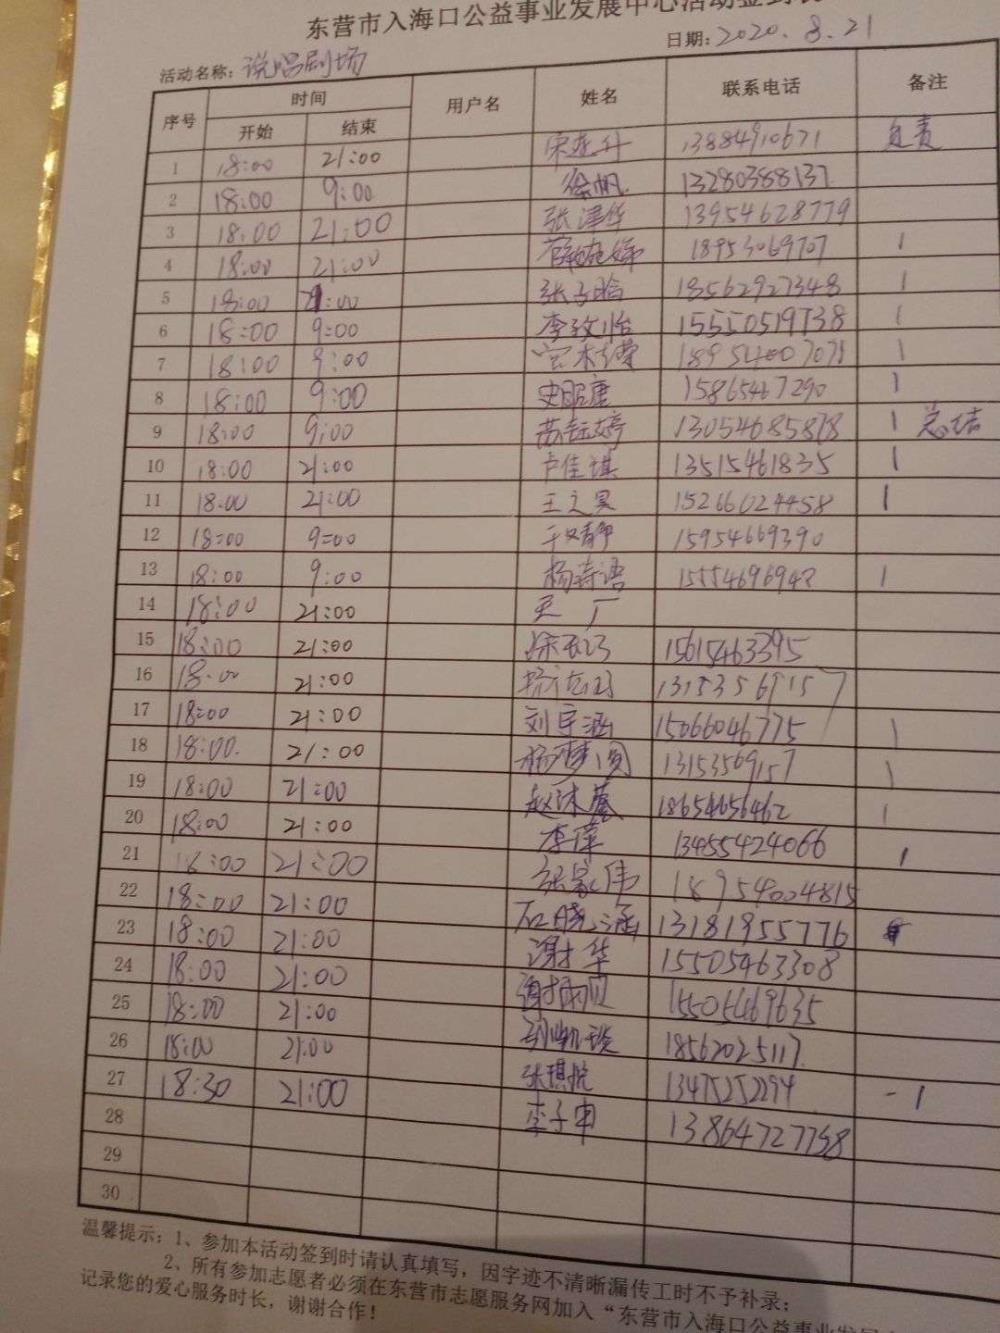 东营市入海口公益事业发展中心活动签到表
日期: 2020.8.21
活动名称: 说唱剧场
序号 时间 用户名 姓名 联系电话 备注
开始 结束
1 18:00 21:00 13884910671 负责
2 18:00 9:00 徐帆 13280388137
3 18:00 21:00 张津华 13954628779
4 18:00 21:00 18953069707 1
5 18:00 21:00 张子晗 18562927348 1
6 18:00 9:00 李致怡 15550519738 1
7 18:00 9:00 18954007071 1
8 18:00 9:00 15865467290 1
9 18:00 9:00 苏钰婷 13054685878 1 总结
10 18:00 21:00 卢佳琪 13515461835 1
11 18:00 21:00 王之昊 15266024458 1
12 18:00 9:00 15954669390
13 18:00 9:00 杨诗语 15554696942 1
14 18:00 21:00
15 18:00 21:00 15615463395
16 18:00 21:00 13153569157
17 18:00 21:00 刘宇涵 15066046775 1
18 18:00 21:00 13153569157 1
19 18:00 21:00 18654656462 1
20 18:00 21:00 13455424066 1
21 18:00 21:00 张家伟 18954004815
22 18:00 21:00 石晓涵 13181955776
23 18:00 21:00 谢才华 15505463308
24 18:00 21:00 谢雨 15505469635
25 18:00 21:00 18562025117
26 18:00 21:00 张琪悦 13475252294 - 1
27 18:30 21:00 李子申 13864727758
28
29
30
温馨提示: 1、参加本活动签到时请认真填写, 因字迹不清晰漏传工时不予补录;
2、所有参加志愿者必须在东营市志愿服务网加入“东营市入海口公益事业发展
记录您的爱心服务时长, 谢谢合作!